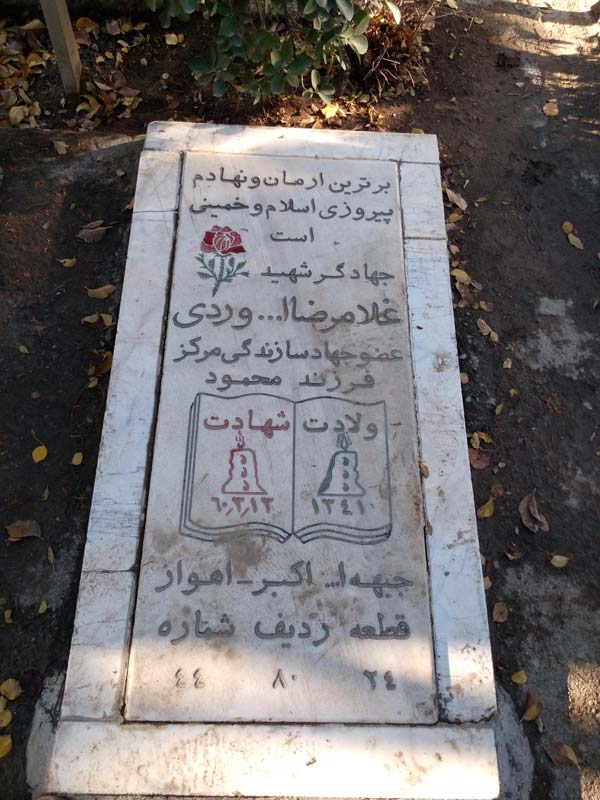 برترین ارمان و نهادم
پیروزی اسلام و خمینی
است
جهادگر شهید
غلامرضا ا... وردی
عضو جهاد سازندگی مرکز
فرزند محمود
ولادت شهادت
۶۰,۳,۱۲
جبهه ا... اکبر - اهواز
قطعه ردیف شماره
۲۴ ۸۰ ۴۴